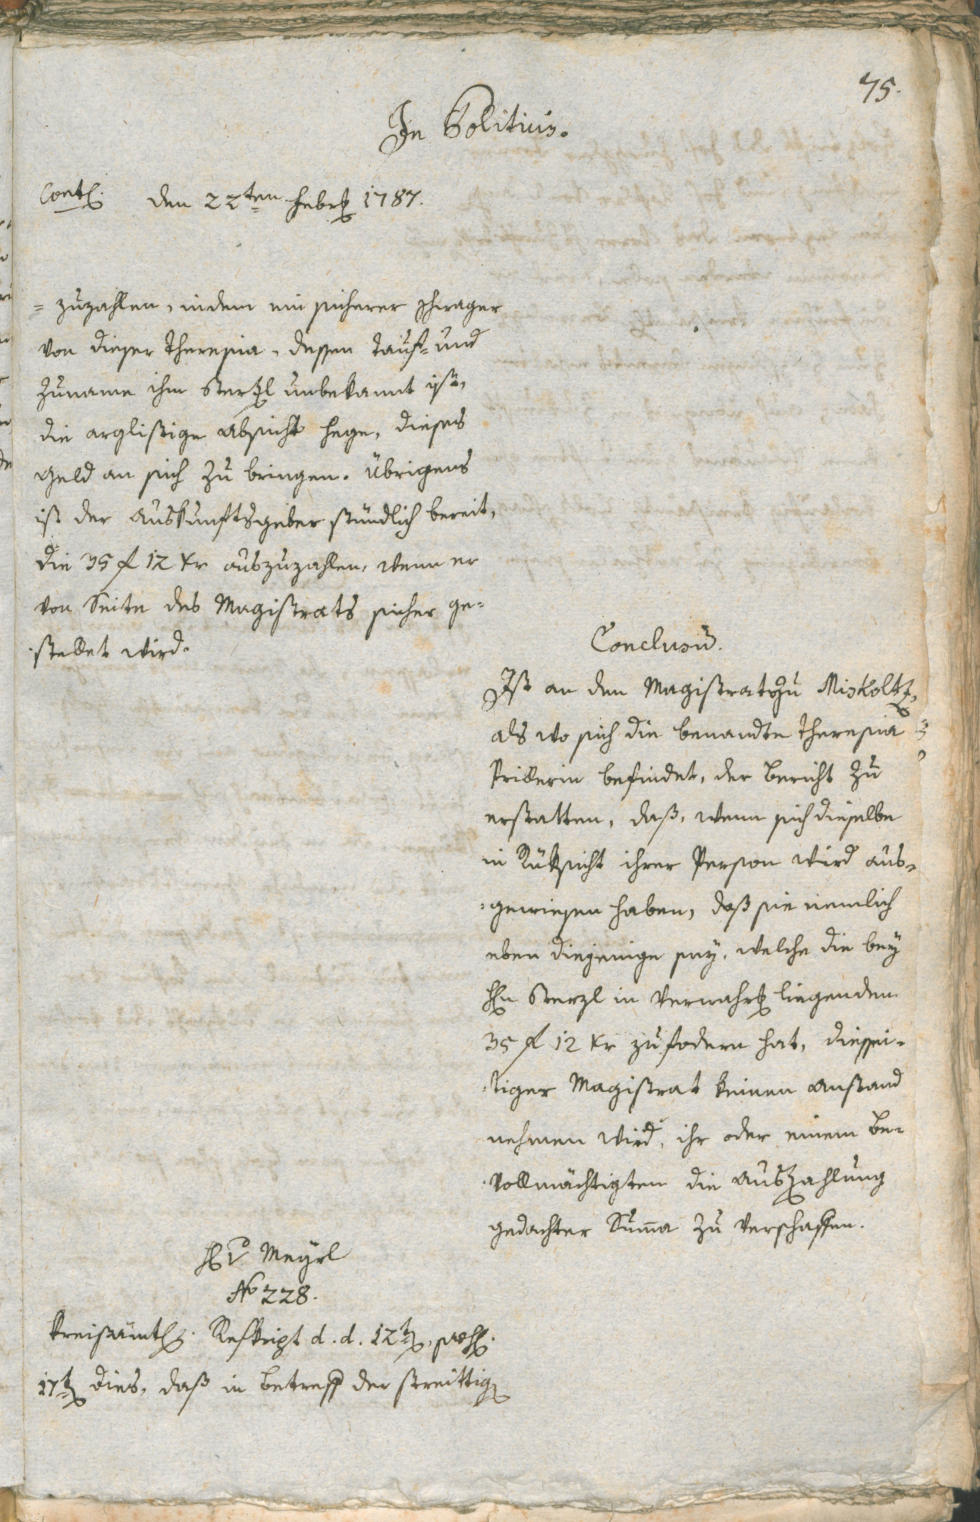 75.
In Politicis.
Contin. den 22ten Febr 1787.
= zuzahlen, indem ein sicherer Schwager
von dieser Theresia, dessen Tauf- und
Zuname ihm Sterzl unbekannt ist,
die arglistige Absicht hege, dieses
Geld an sich zu bringen. Übrigens
ist der Auskunftsgeber stündlich bereit,
die 35 f 12 kr auszuzahlen, wenn er
von Seite des Magistrats sicher ge-
stellet wird.
Conclusum.
Ist an den Magistrat zu Miskoltz,
als wo sich die benandte Theresia
befindet, der Bericht zu
erstatten, daß, wenn sich dieselbe
in Rüksicht ihrer Person wird aus-
gewiesen haben, daß sie nemlich
eben diejenige sey, welche die bey
Hn Sterzl in Verwahr liegenden
35 f 12 kr zufodern hat, dießei-
tiger Magistrat keinen Anstand
nehmen wird, ihr oder einem Be-
vollmächtigten die Auszahlung
gedachter Suma zu verschaffen.
Hr v Meyrl
No 228.
Kreisämtl. Reskript d. d. 12t, praes.
17t dies, daß in Betreff der streittig